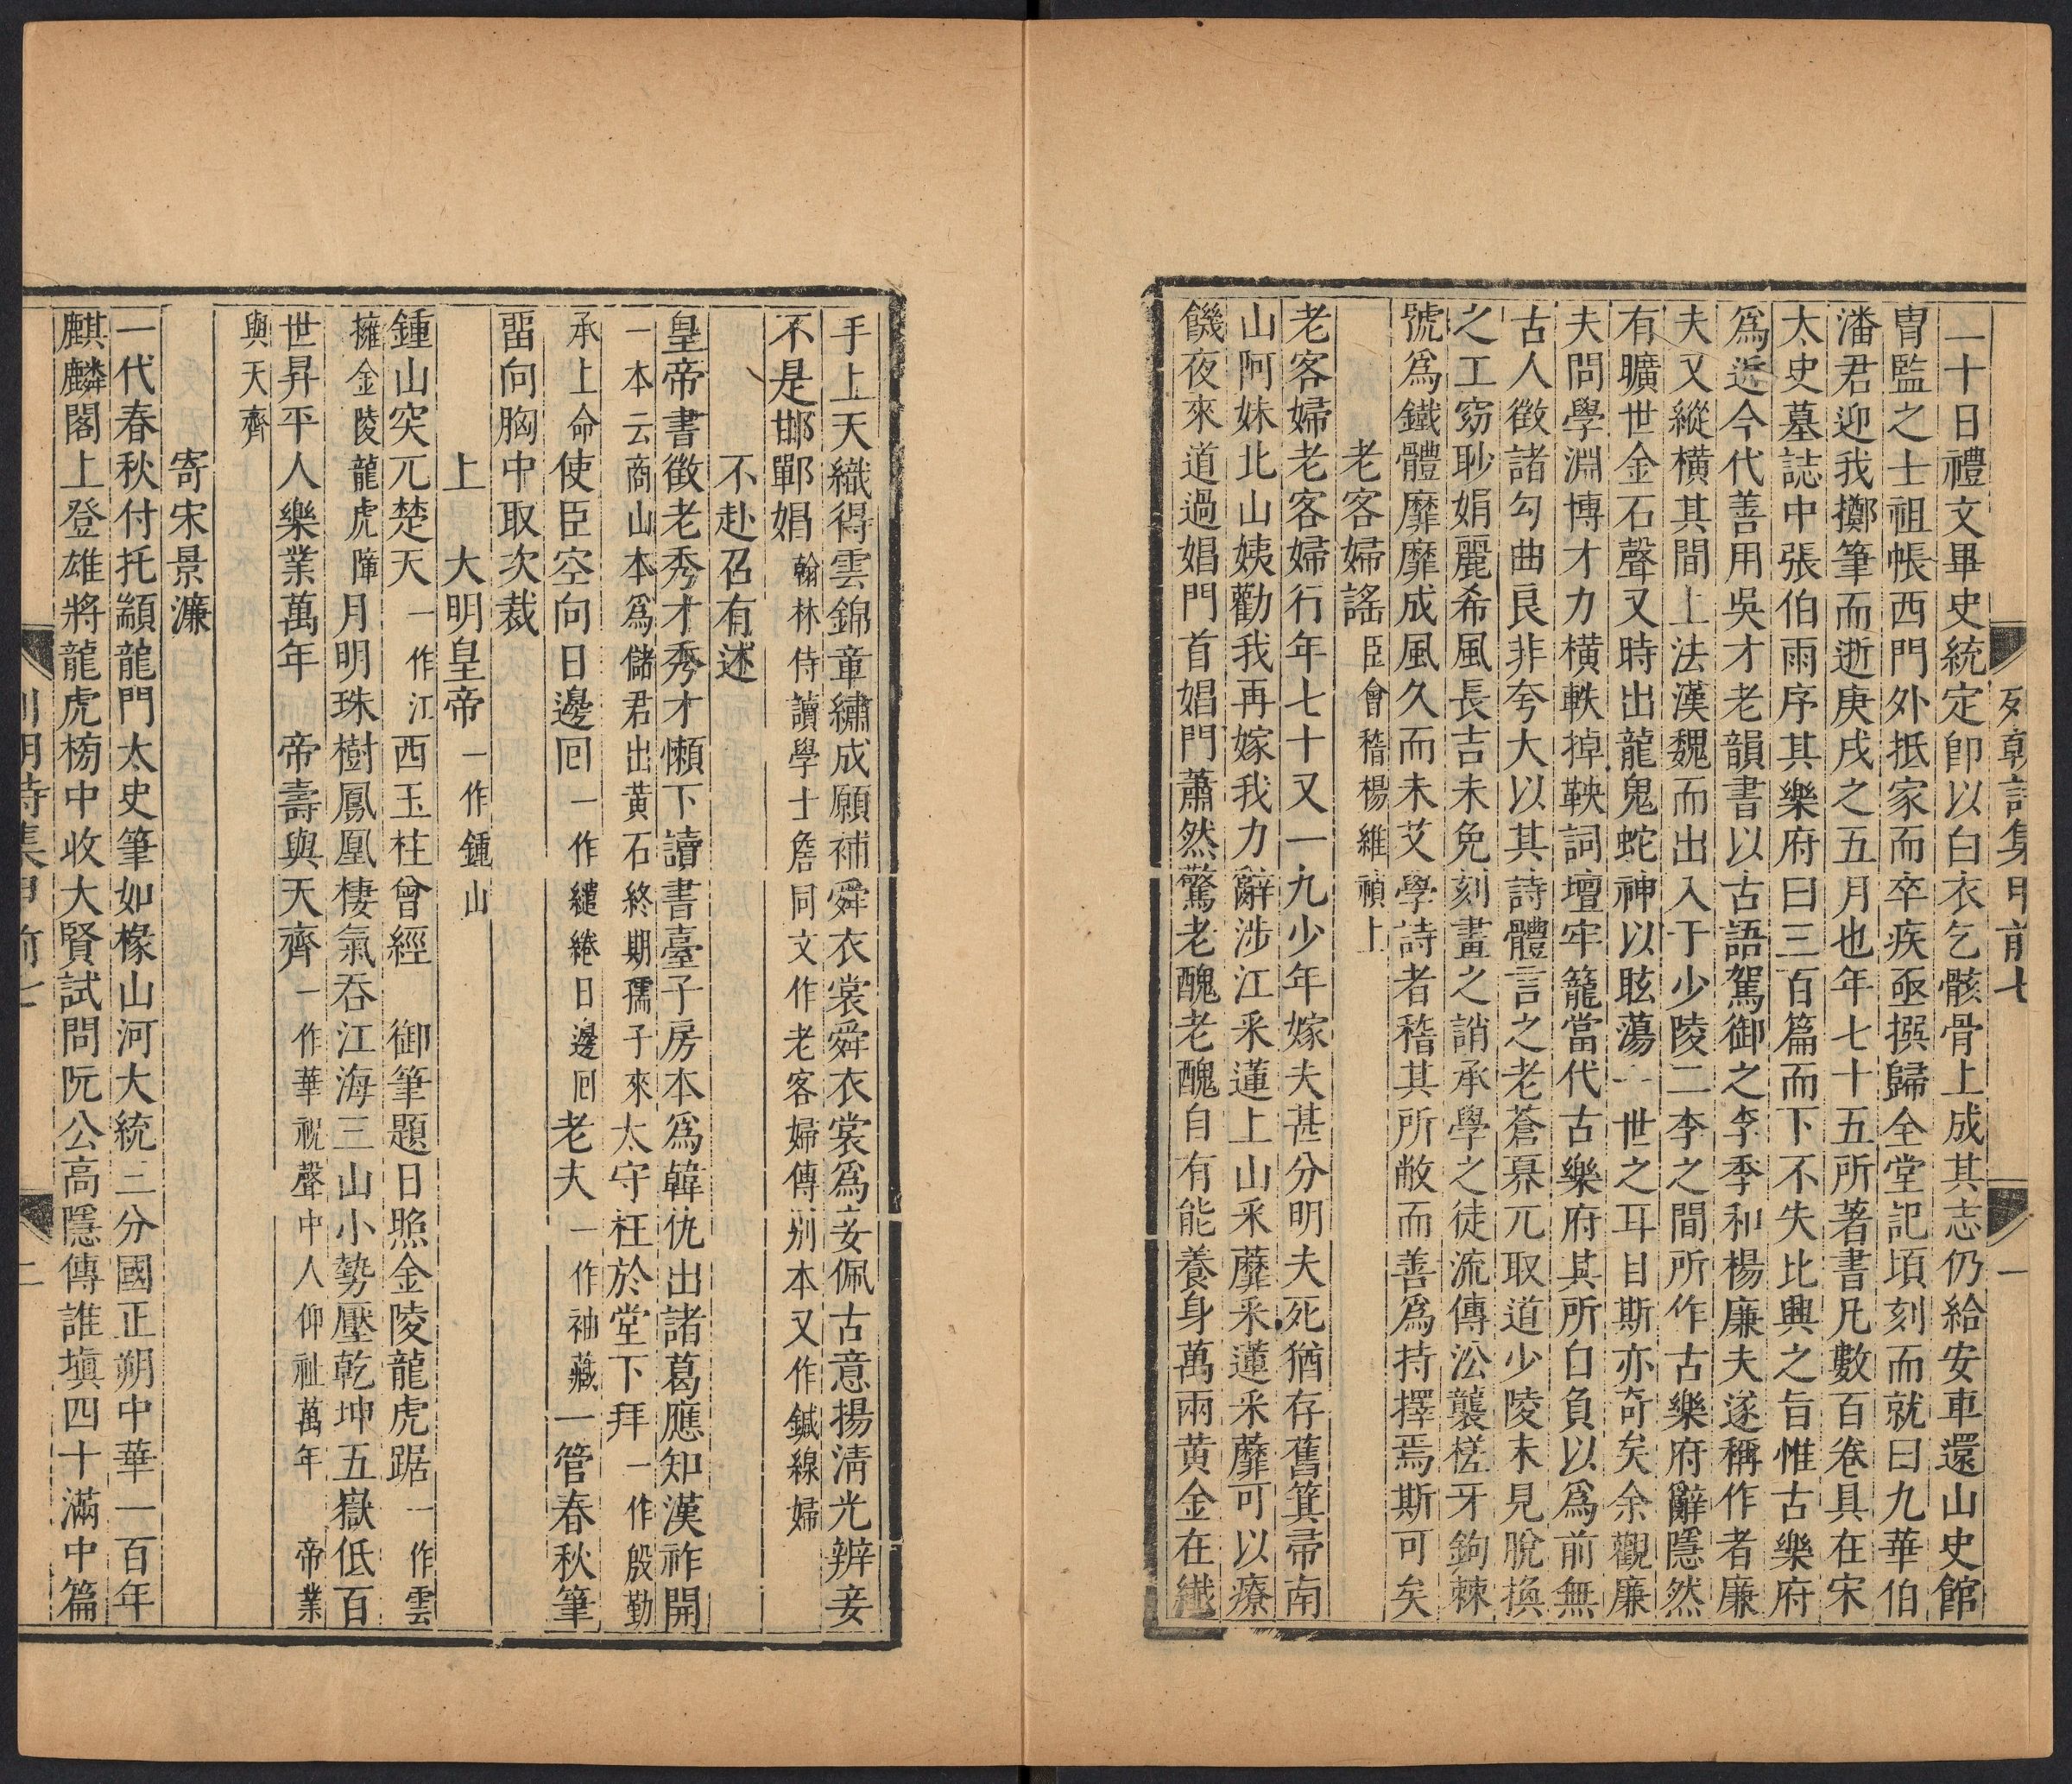 列朝詩集甲前七 一
二十日禮文畢史統定卽以白衣乞骸骨上成其志仍給安車還山史館
冑監之士祖帳西門外抵家而卒疾亟撰歸全堂記頃刻而就曰九華伯
潘君迎我擲筆而逝庚戌之五月也年七十五所著書凡數百卷具在宋
太史墓誌中張伯雨序其樂府曰三百篇而下不失比興之旨惟古樂府
爲近今代善用吳才老韻書以古語駕御之李季和楊廉夫遂稱作者廉
夫又縱橫其間上法漢魏而出入于少陵二李之間所作古樂府辭隱然
有曠世金石聲又時出龍鬼蛇神以眩蕩一世之耳目斯亦奇矣余觀廉
夫問學淵博才力橫軼掉鞅詞壇牢籠當代古樂府其所自負以爲前無
古人徵諸勾曲良非夸大以其詩體言之老蒼奡兀取道少陵未見脫換
之工窈眇娟麗希風長吉未免刻畫之誚承學之徒流傳沿襲槎牙鉤棘
號爲鐵體靡靡成風久而未艾學詩者稽其所敝而善爲持擇焉斯可矣
老客婦謠 臣會稽楊維禎上
老客婦老客婦行年七十又一九少年嫁夫甚分明夫死猶存舊箕帚南
山阿妹北山姨勸我再嫁我力辭涉江采蓮上山采蘼采蓮采蘼可以療
饑夜來道過娼門首娼門蕭然驚老醜老醜自有能養身萬兩黃金在纖
手上天織得雲錦章繡成願補舜衣裳舜衣裳爲妾佩古意揚淸光辨妾
不是邯鄲娼 翰林侍讀學士詹同文作老客婦傳別本又作鍼線婦
不赴召有述
皇帝書徵老秀才秀才懶下讀書臺子房本爲韓仇出諸葛應知漢祚開
一本云商山本爲儲君出黃石終期孺子來太守枉於堂下拜 一作殷勤
承上命使臣空向日邊回 一作繾綣日邊回老夫 一作袖藏一管春秋筆
畱向胸中取次裁
上 大明皇帝 一作鍾山
鍾山突兀楚天 一作江西玉柱曾經 御筆題日照金陵龍虎踞 一作雲
擁金陵龍虎陣月明珠樹鳳凰棲氣吞江海三山小勢壓乾坤五嶽低百
世昇平人樂業萬年 帝壽與天齊 一作華祝聲中人仰祉萬年 帝業
與天齊
寄宋景濂
一代春秋付托顓龍門太史筆如椽山河大統三分國正朔中華一百年
麒麟閣上登雄將龍虎榜中收大賢試問阮公高隱傳誰塡四十滿中篇
列朝詩集甲前七 二